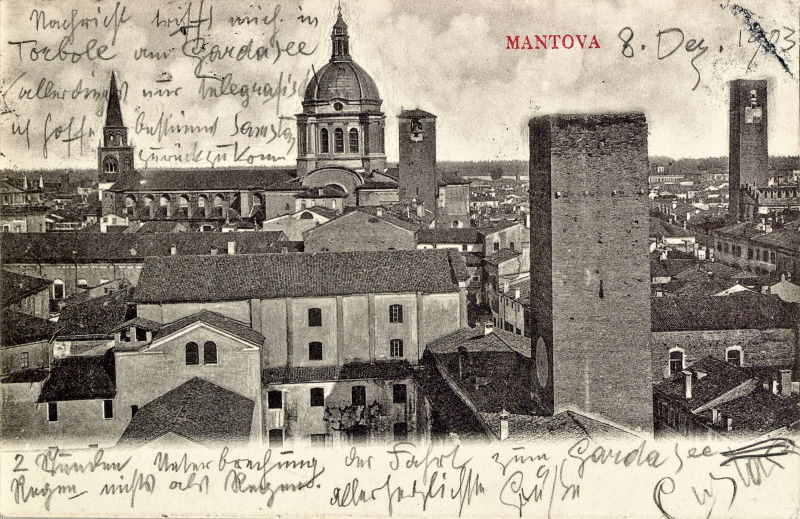 Nachricht trifft mich in
MANTOVA
8. Dez. 1903
Torbole am Gardasee
(allerdings nur telegrafisch
ich hoffe bestimmt Samstag
zurückzukom
2 Stunden Unterbrechung der Fahrt zum Gardasee
Regen, nichts als Regen. allerherzlichste Grüße